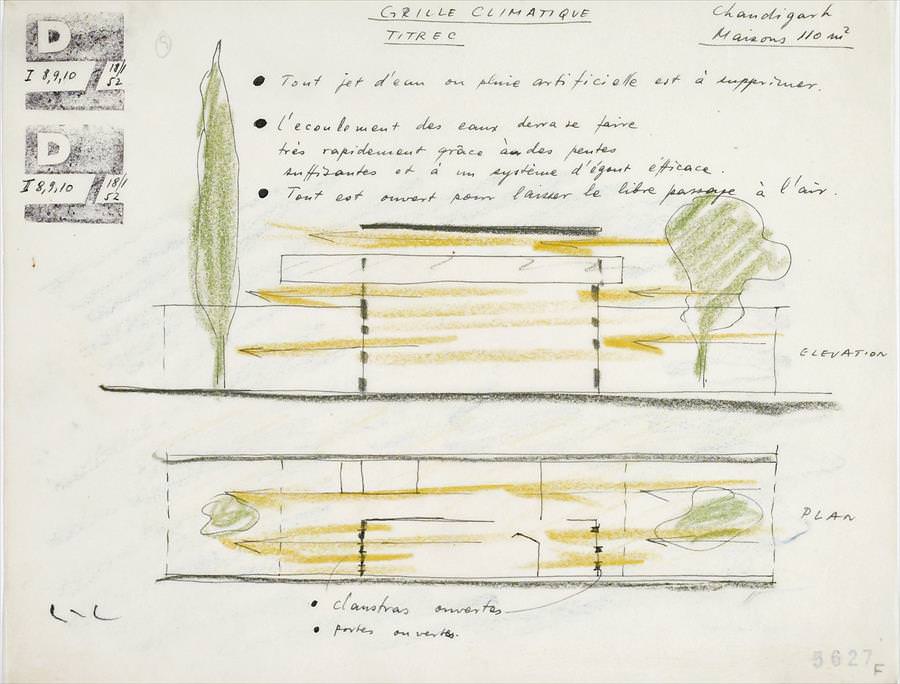 GRILLE CLIMATIQUE
TITRE C
Chandigarh
Maisons 110 m²
D
I 8,9,10 18/1 52
D
I 8,9,10 18/1 52
5
• Tout jet d'eau ou pluie artificielle est à supprimer.
• l'ecoulement des eaux devra se faire
très rapidement grâce à des pentes
suffisantes et à un système d'égout efficace.
• Tout est ouvert pour laisser le libre passage à l'air.
ELEVATION
PLAN
• claustras ouvertes
• portes ouvertes.
L-C
5627
F